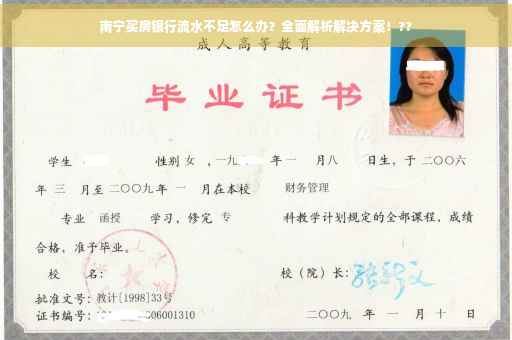 南宁买房银行流水不足怎么办？全面解析解决方案！??
成人高等教育
毕业证书
学生 性别 女 ，一九 年 一 月 八 日生，于 二〇〇六
年 三 月至 二〇〇九 年 一 月在本校 财务管理
专业 函授 学习，修完 专 科教学计划规定的全部课程，成绩
合格，准予毕业。
校 名： 校（院）长：
批准文号：教计[1998]33号
证书编号： 06001310 二〇〇九 年 一 月 十 日